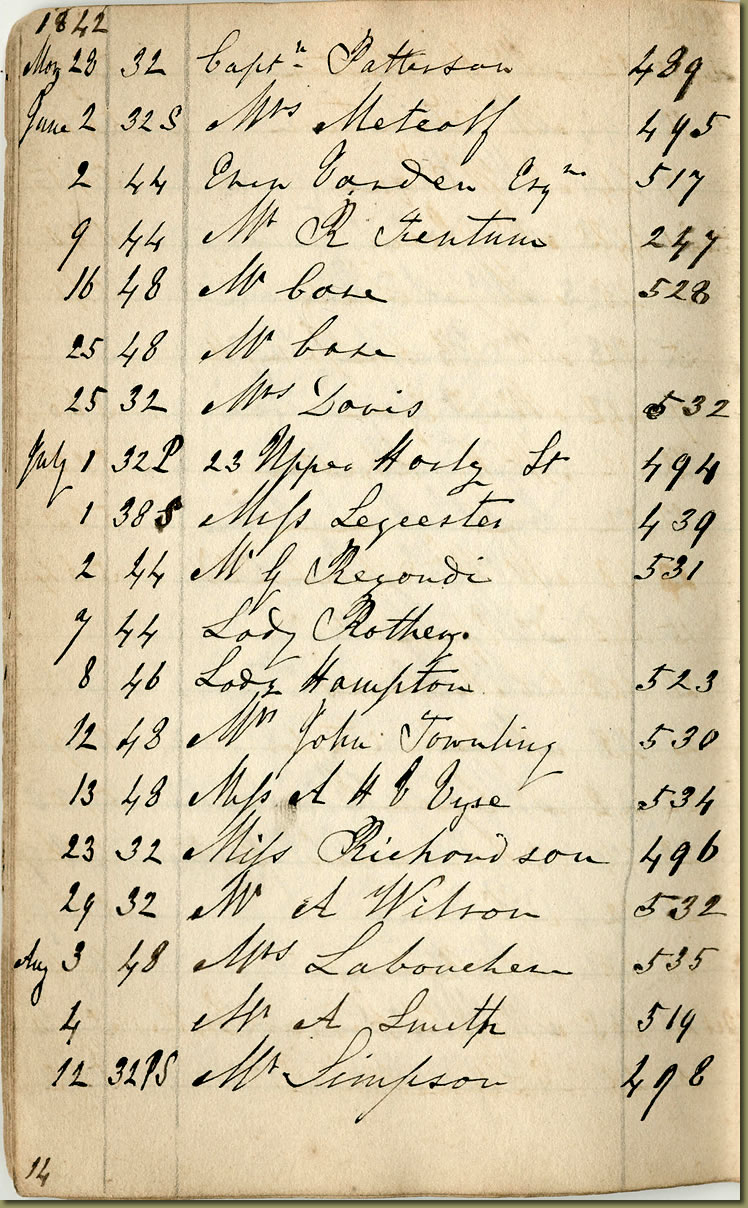 1842
May 28 32 Captn Patterson 489
June 2 32S Mrs Metcalf 495
2 44 Vanden Esqre 517
9 44 Mr R Fentum 247
16 48 Mr Case 528
25 48 Mr Case
25 32 Mrs Davis 532
July 1 32P 23 Upper Harly St 494
1 38S Miss Leycester 439
2 44 Mr G Regondi 531
7 44 Lady Rothey.
8 46 Lady Hampton 523
12 48 Mr John Townling 530
13 48 Miss A H Vyse 534
23 32 Miss Richardson 496
29 32 Mr A Wilson 532
Aug 3 48 Mrs Labouchere 535
4 Mr A Smith 519
12 32PS Mr Simpson 498
14